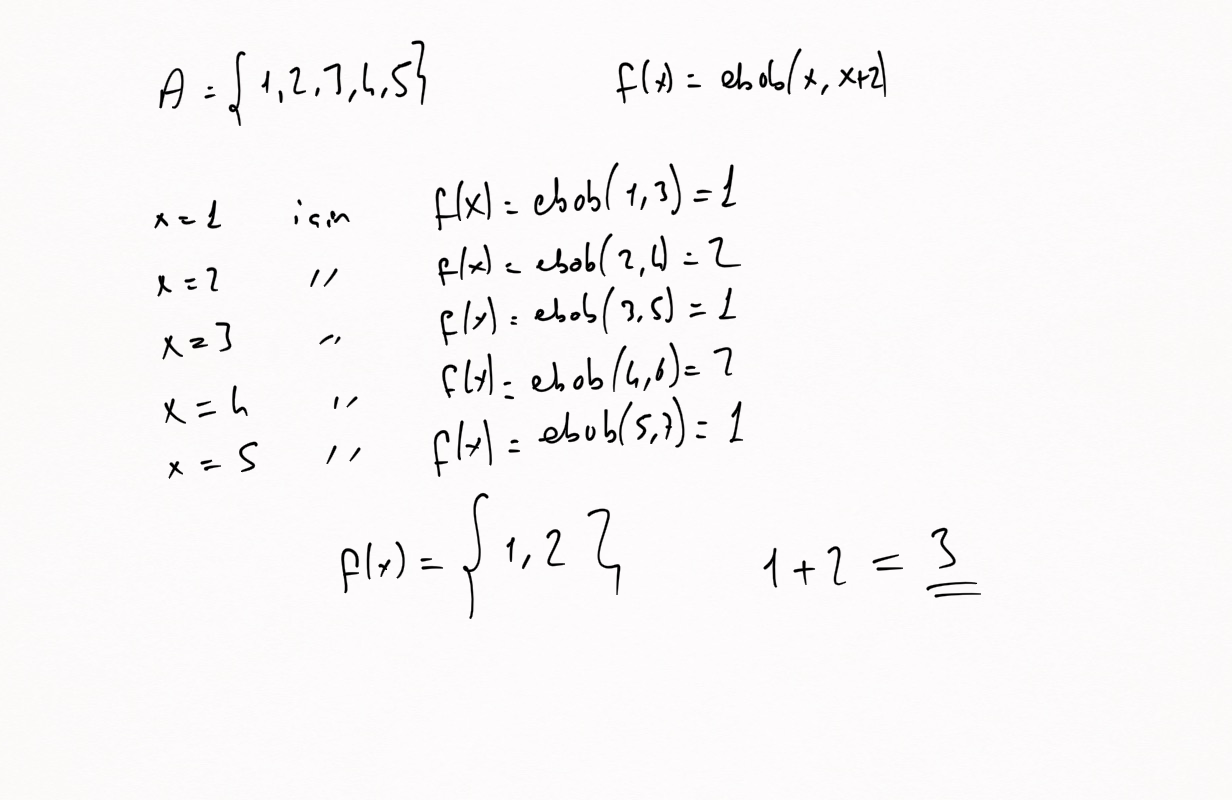 A = {1,2,3,4,5} f(x) = ebob(x, x+2)
x = 1 için f(x) = ebob(1,3) = 1
x = 2 // f(x) = ebob(2,4) = 2
x = 3 // f(x) = ebob(3,5) = 1
x = 4 // f(x) = ebob(4,6) = 2
x = 5 // f(x) = ebob(5,7) = 1
f(x) = {1,2} 1+2 = 3